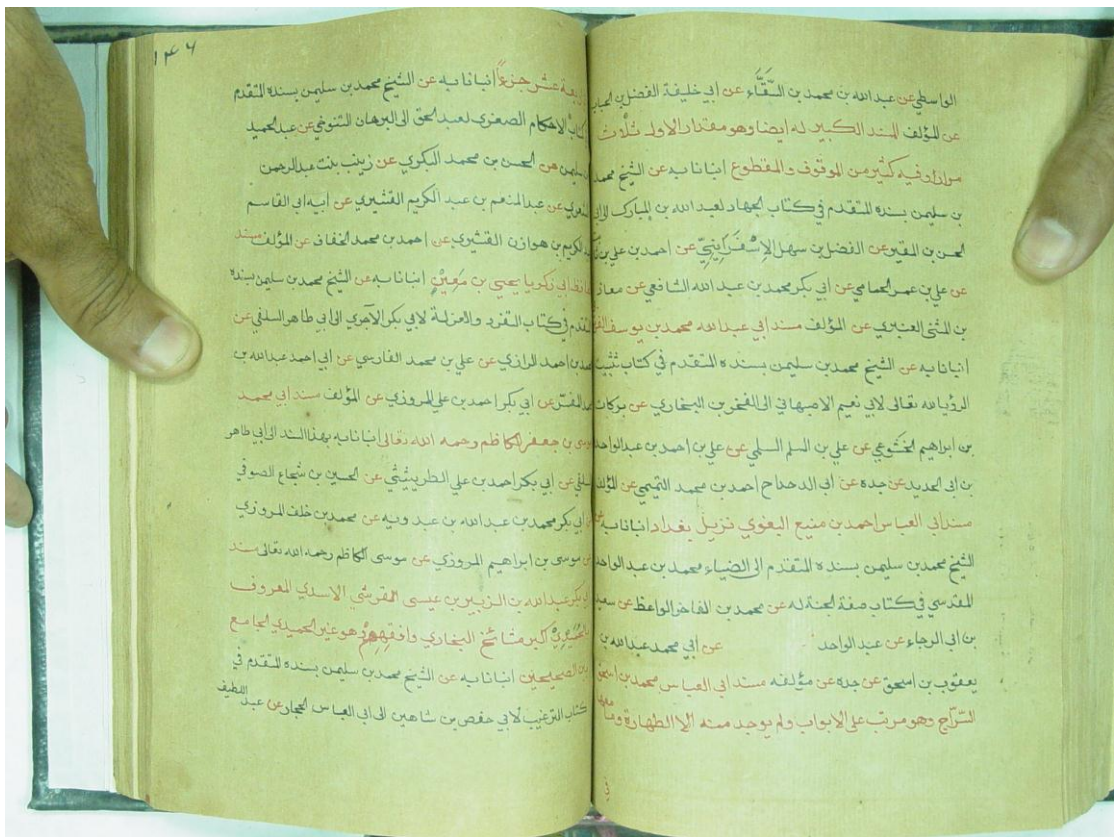 الواسطي عن عبد الله بن محمد بن السَّقَّاء عن أبي خليفة الفضل بن الحباب
عن المؤلف المسند الكبير له ايضا وهو مقدار الاول ثلاث
مرار وفيه كثير من الموقوف والمقطوع انبانا به عن الشيخ محمد
بن سليمن بسنده المتقدم في كتاب الجهاد لعبد الله بن المبارك الى ابي
الحسن بن المقير عن الفضل بن سهل الإسْفَرَايِنِيّ عن احمد بن علي بن
عن علي بن عمر الحمامي عن أبي بكر محمد بن عبد الله الشافعي عن معاذ
بن المثنى العنبري عن المؤلف مسند أبي عبد الله محمد بن يوسف
انبانا به عن الشيخ محمد بن سليمن بسنده المتقدم في كتاب تثبيت
الرؤيا لله تعالى لابي نعيم الاصبهاني الى الفخر بن البخاري عن بركات
بن ابراهيم الخشوعي عن علي بن المسلم السلمي عن علي بن احمد بن عبد الواحد
بن ابي الحديد عن جده عن ابي الدحداح احمد بن محمد التميمي عن المؤلف
مسند أبي العباس احمد بن منيع البغوي نزيل بغداد انبانا به عن
الشيخ محمد بن سليمن بسنده المتقدم الى الضياء محمد بن عبد الواحد
المقدسي في كتاب صفة الجنة له عن محمد بن الفاخر الواعظ عن سعيد
بن ابي الرجاء عن عبد الواحد عن أبي محمد عبد الله بن
يعقوب بن اسحق عن جده عن مؤلفه مسند ابي العباس محمد بن اسحق
السَّرَّاج وهو مرتب على الابواب ولم يوجد منه الا الطهارة وما
في
١٤٦
اربعة عشر جزءاً انبانا به عن الشيخ محمد بن سليمن بسنده المتقدم
كتاب الاحكام الصغرى لعبد الحق الى البرهان التنوخي عن عبد الحميد
بن سليمن عن الحسن بن محمد البكري عن زينب بنت عبد الرحمن
الشعري عن عبد المنعم بن عبد الكريم القشيري عن أبيه ابي القاسم
عبد الكريم بن هوازن القشيري عن احمد بن محمد الخفاف عن المؤلف مسند
الحافظ ابي زكريا يحيى بن مَعِيْنٍ انبانا به عن الشيخ محمد بن سليمن بسنده
المتقدم في كتاب التفرد والعزلة لابي بكر الآجري الى ابي طاهر السلفي عن
محمد بن احمد الرازي عن علي بن محمد الفارسي عن أبي احمد عبد الله بن
محمد المفسر عن ابي بكر احمد بن علي المروزي عن المؤلف مسند ابي محمد
موسى بن جعفر الكاظم رحمه الله تعالى انبانا به بهذا السند الى ابي طاهر
السلفي عن ابي بكر احمد بن علي الطريثيثي عن الحسين بن شجاع الصوفي
عن ابي بكر محمد بن عبد الله بن عبدويه عن محمد بن خلف المروزي
عن موسى بن ابراهيم المروزي عن موسى الكاظم رحمه الله تعالى مسند
ابو بكر عبد الله بن الزبير بن عيسى القرشي الاسدي المعروف
بالحُمَيْدِيْ اكبر مشائخ البخاري وافقههم وهو غير الحميدي الجامع
بين الصحيحين انبانا به عن الشيخ محمد بن سليمن بسنده المتقدم في
كتاب الترغيب لابي حفص بن شاهين الى ابي العباس الحجار عن عبد اللطيف